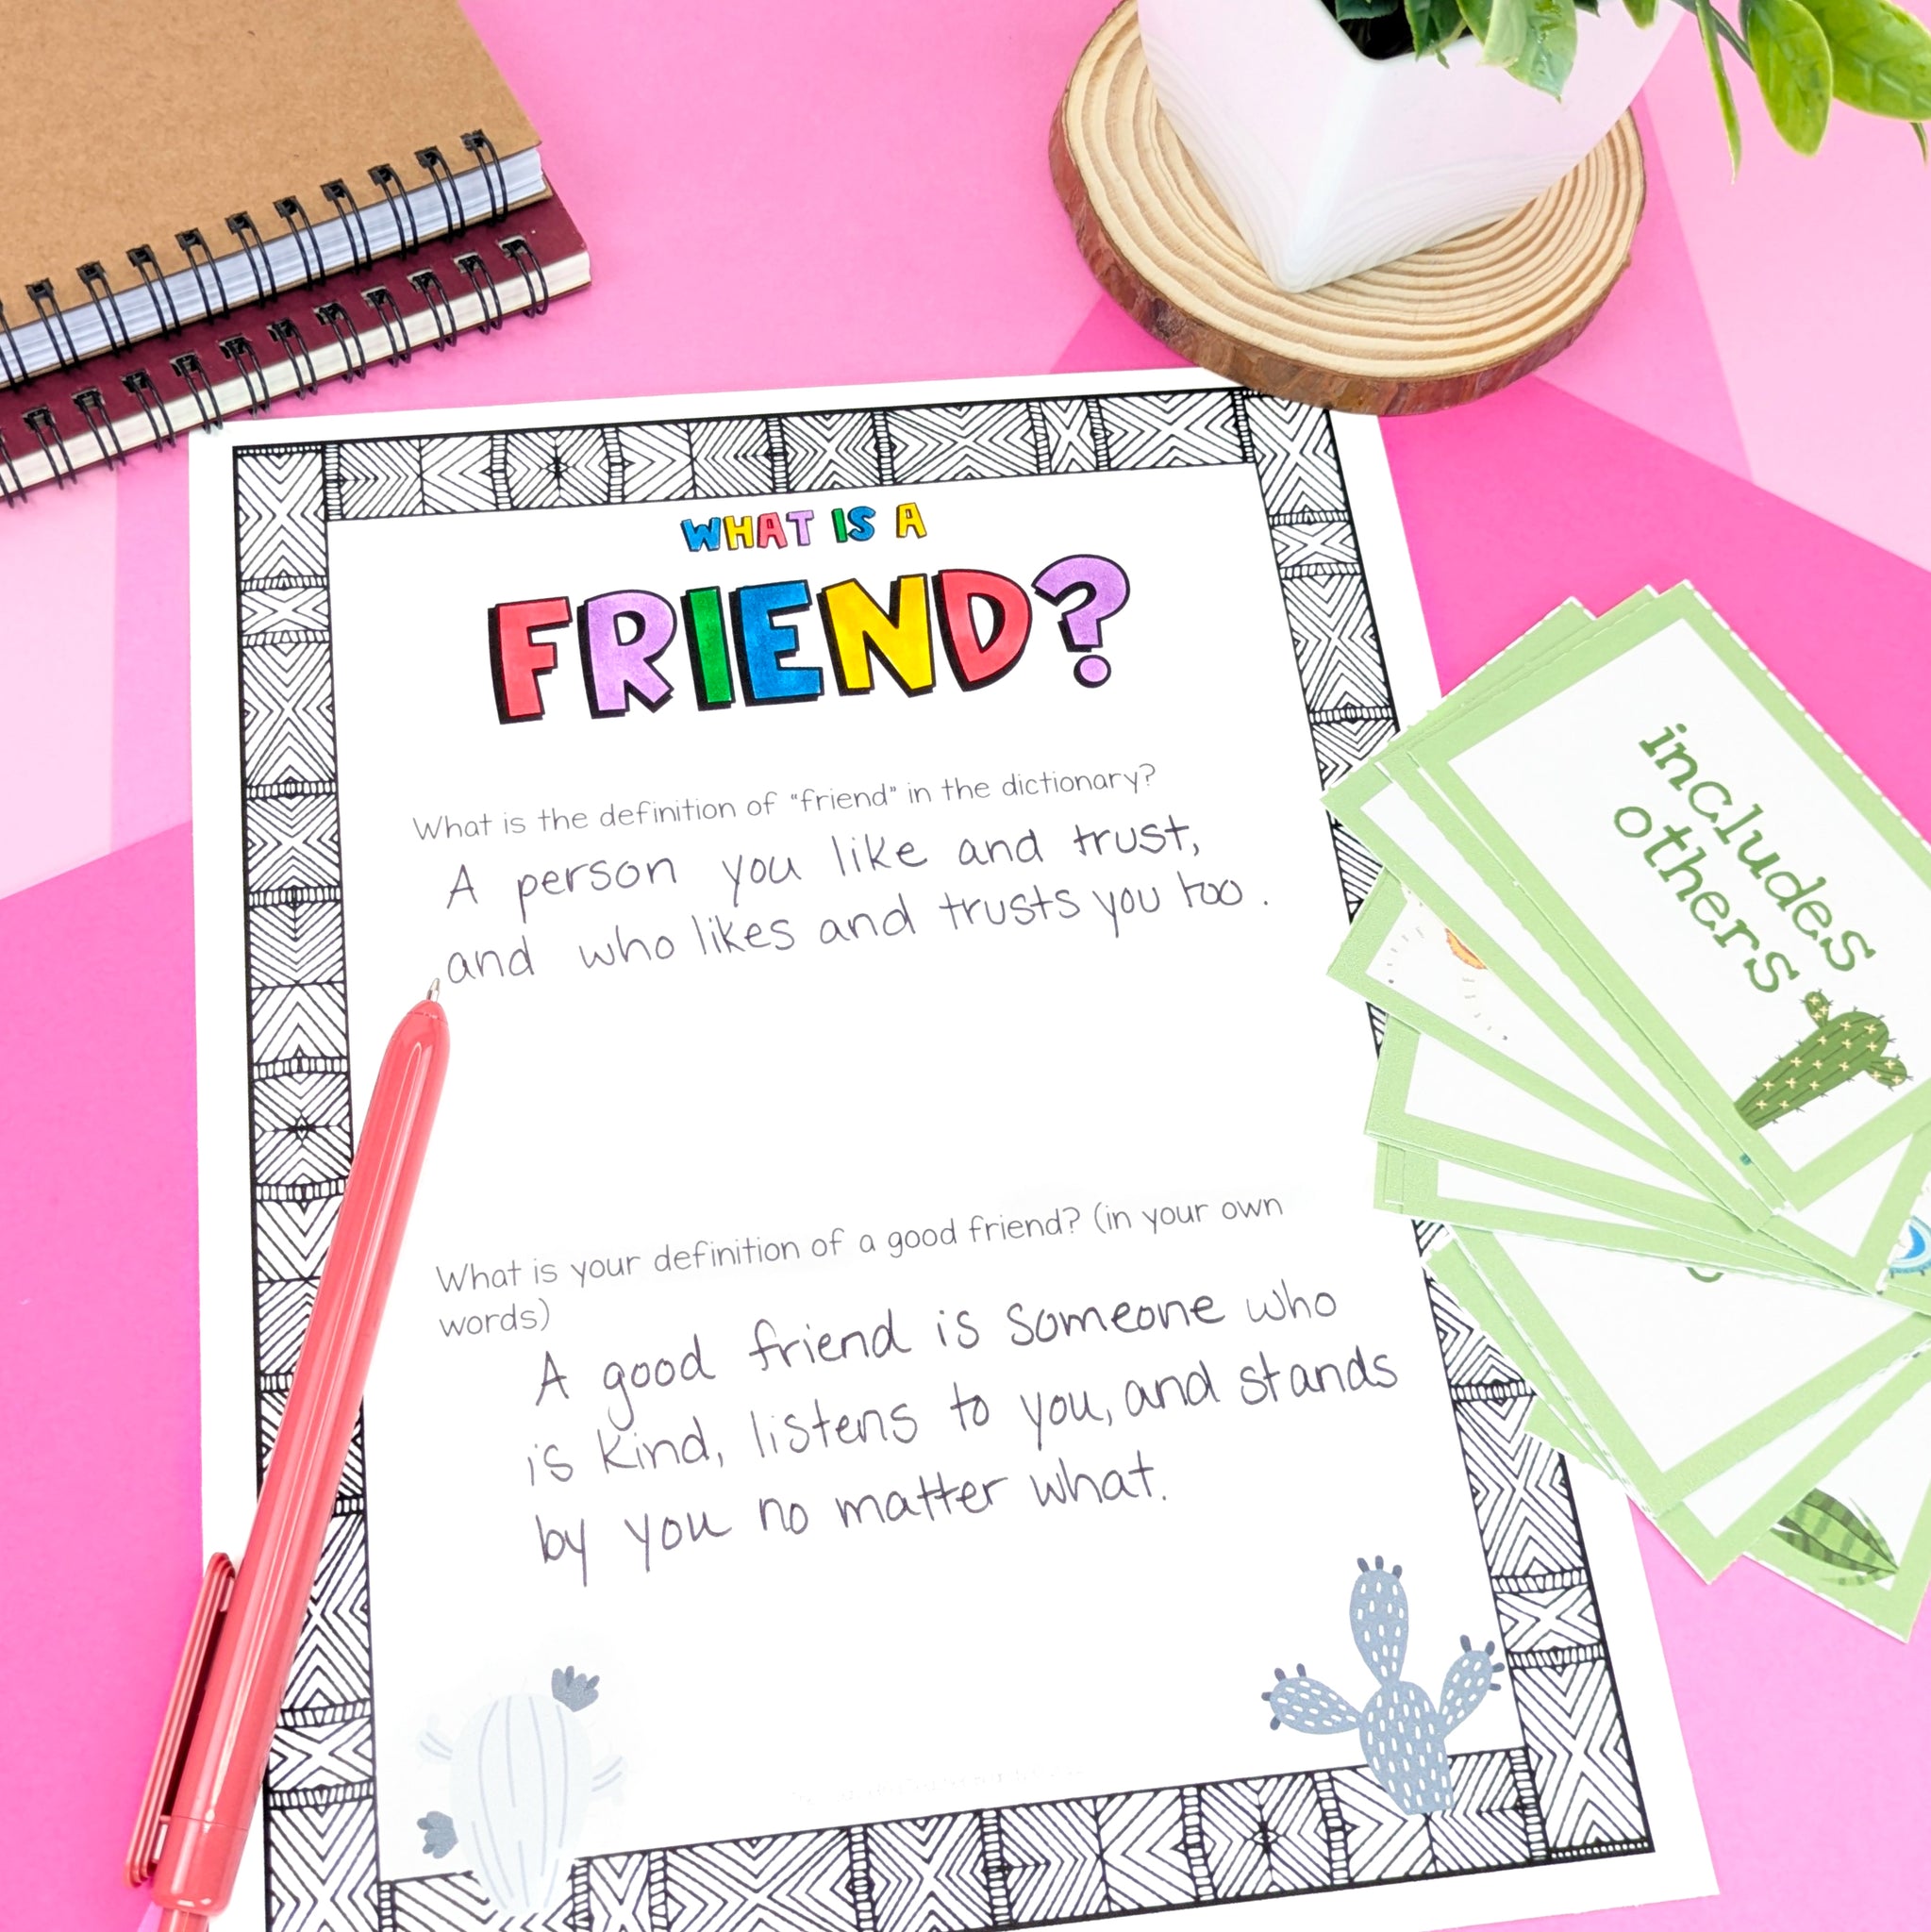 WHAT IS A
FRIEND?
What is the definition of "friend" in the dictionary?
A person you like and trust,
and who likes and trusts you too.
What is your definition of a good friend? (in your own
words)
A good friend is someone who
is kind, listens to you, and stands
by you no matter what.
includes
others